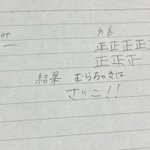 正正正正
正正正
結果 むらさきは
さいこ!!